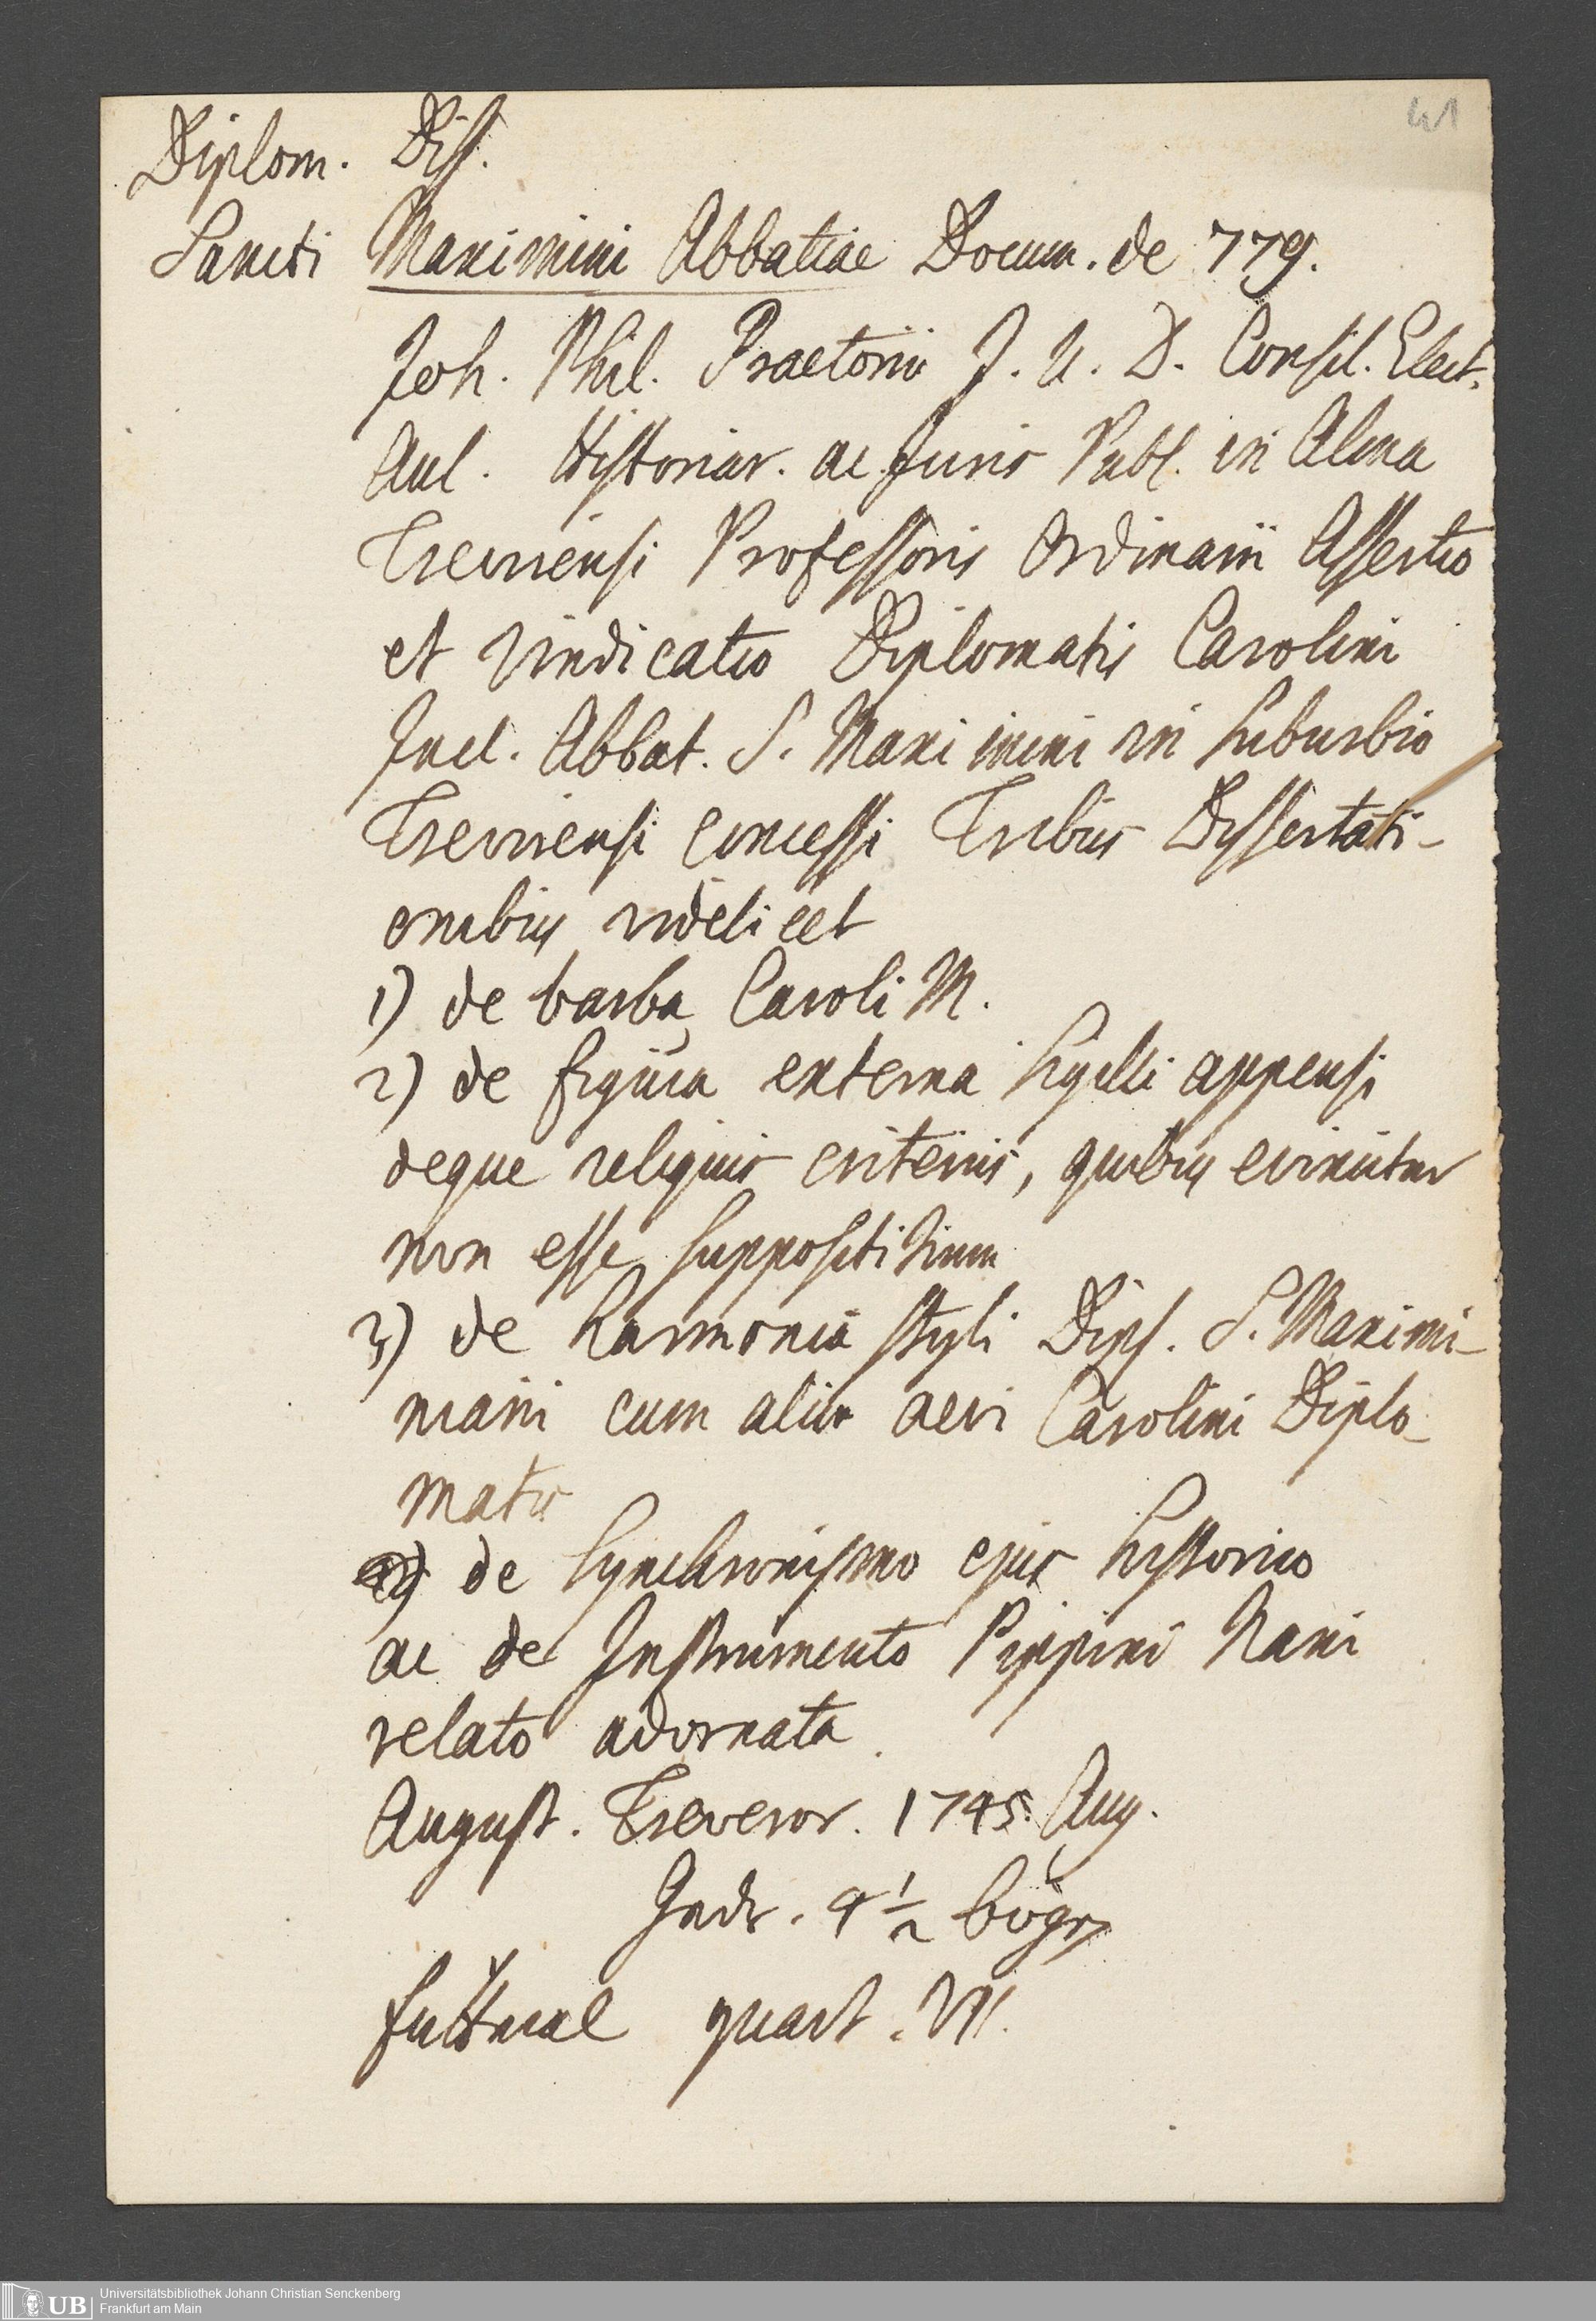 41
Diplom. Diss.
Sancti Maximini Abbatiae Docum. de 779.
Joh. Phil. Praetorii J. U. D. Consil. Elect.
Aul. Historiar. ac Juris Publ. in Alma
Trevirensi Professoris Ordinarii Assertio
et vindicatio Diplomatis Carolini
Incl. Abbat. S. Maximini in suburbio
Trevirensi concessi Tribus Dissertati-
onibus videlicet
1) de barba Caroli M.
2) de figura externa sigilli appensi
deque reliquis criteriis, quibus evincitur
non esse supposititium
3) de harmonia styli Dipl. S. Maximi-
niani cum aliis aevi Carolini Diplo-
matis
de synchronismo ejus historico
ac de Instrumento Pippini Nani
relato adornata.
August. Treveror. 1745. Aug.
Judr. 9 1/2 bögn
quart. VII.
UB Universitätsbibliothek Johann Christian Senckenberg
Frankfurt am Main